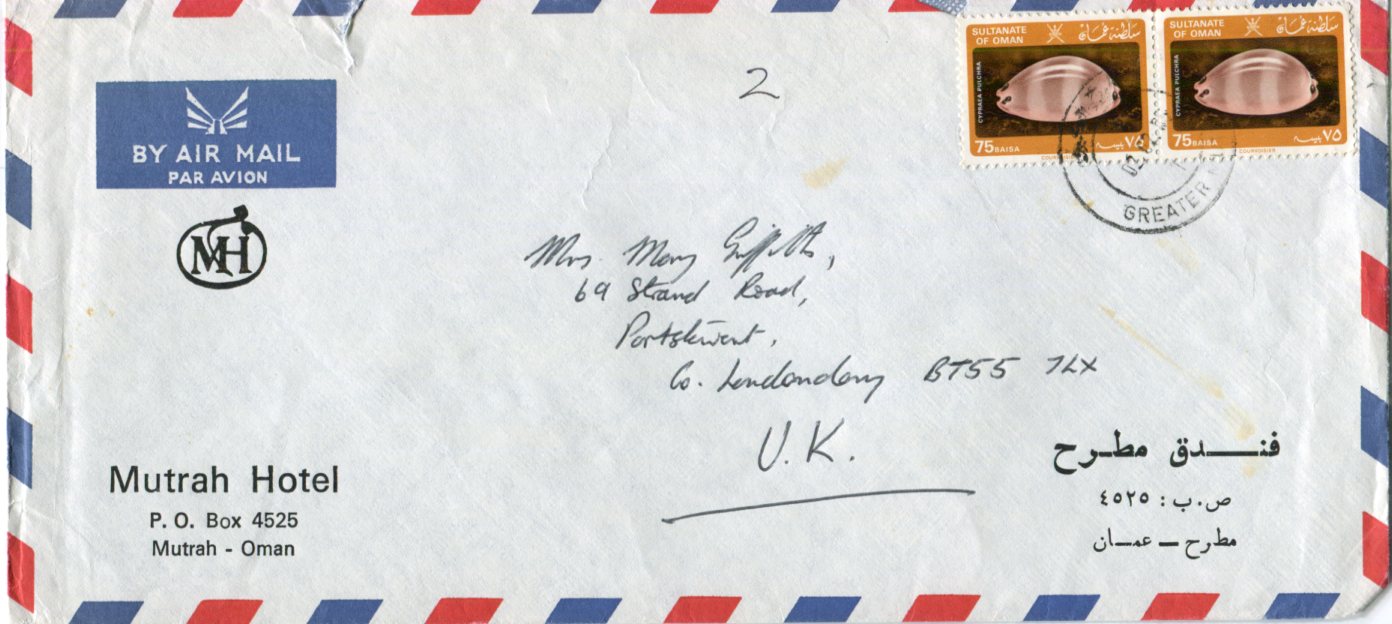 SULTANATE
OF OMAN
سلطنة عمان
CYPRAEA PULCHRA
75 BAISA
٧٥ بيسة
COURVOISIER
SULTANATE
OF OMAN
سلطنة عمان
CYPRAEA PULCHRA
75 BAISA
٧٥ بيسة
COURVOISIER
GREATER
2
BY AIR MAIL
PAR AVION
MH
Mrs. Mary Griffiths,
69 Strand Road,
Portstewart,
Co. Londonderry BT55 7LX
U.K.
Mutrah Hotel
P. O. Box 4525
Mutrah - Oman
فنـــدق مطـرح
ص.ب: ٤٥٢٥
مطرح ــ عمــان